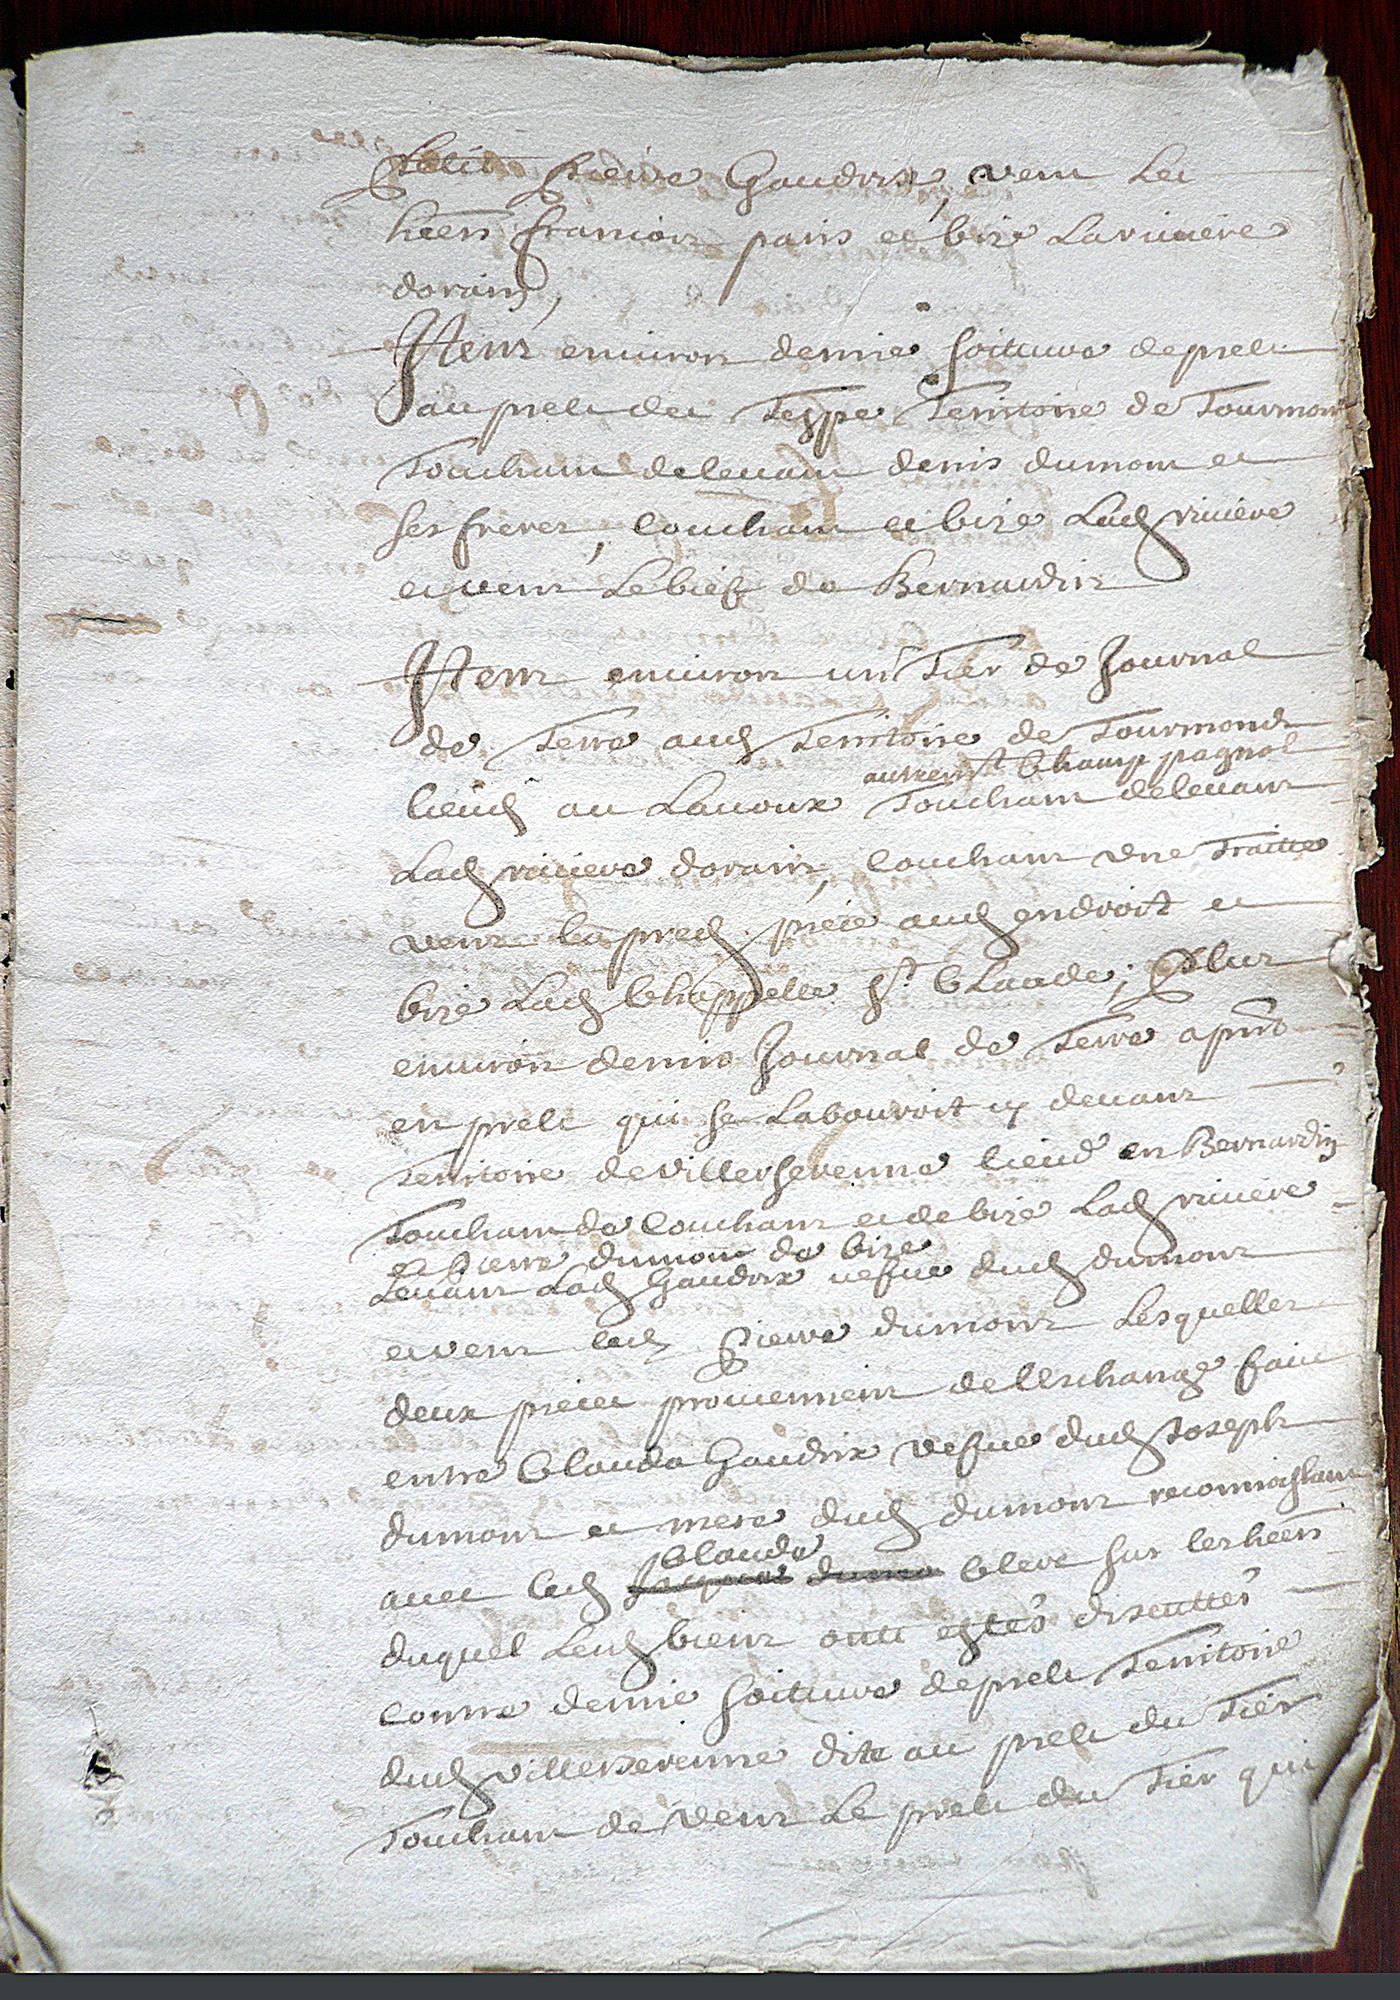 Petit Pierre Gaudrix, vent les
hēērs francois paris et bize La riuiere
dorain,
Item enuiron demie soitture de prelz
au prelz des Teppe Territoire de Tourmont
Touchant de leuant denis dumont et
ses freres, couchant et bize Lad riuiere
et vent Le bief de Bernardin
Item enuiron un Tier de Journal
de Terre aud Territoire de Tourmont
autremt Champ pagnol
lieud au Lauoux Touchant de leuant
Lad riuiere dorain, couchant vne Traitte
vent la pred piece aud endroit et
bize Lad Chappelle St Claude; Plus
enuiron demie Journal de Terre a pnt
en prelz qui se Labouroit cy deuant
Territoire de villerserenne lieud en Bernardin
Touchant de couchant et de bize Lad riuiere
et Pierre dumont de bize
Leuant Lad Gaudrix vefue dud dumont
et vent led Pierre dumont Lesquelles
deux pieces prouiennent de l'Eschange fait
entre Clauda Gaudrix vefue dud Joseph
dumont et mere dud dumont recognoissant
Claude
auec led Clerc sur les hēērs
duquel Lesd biens ont estés discuttés
contre demie soitture de prelz Territoire
dud villerserenne dite au prelz du Tier
Touchant de vent Le prelz du Tier qui